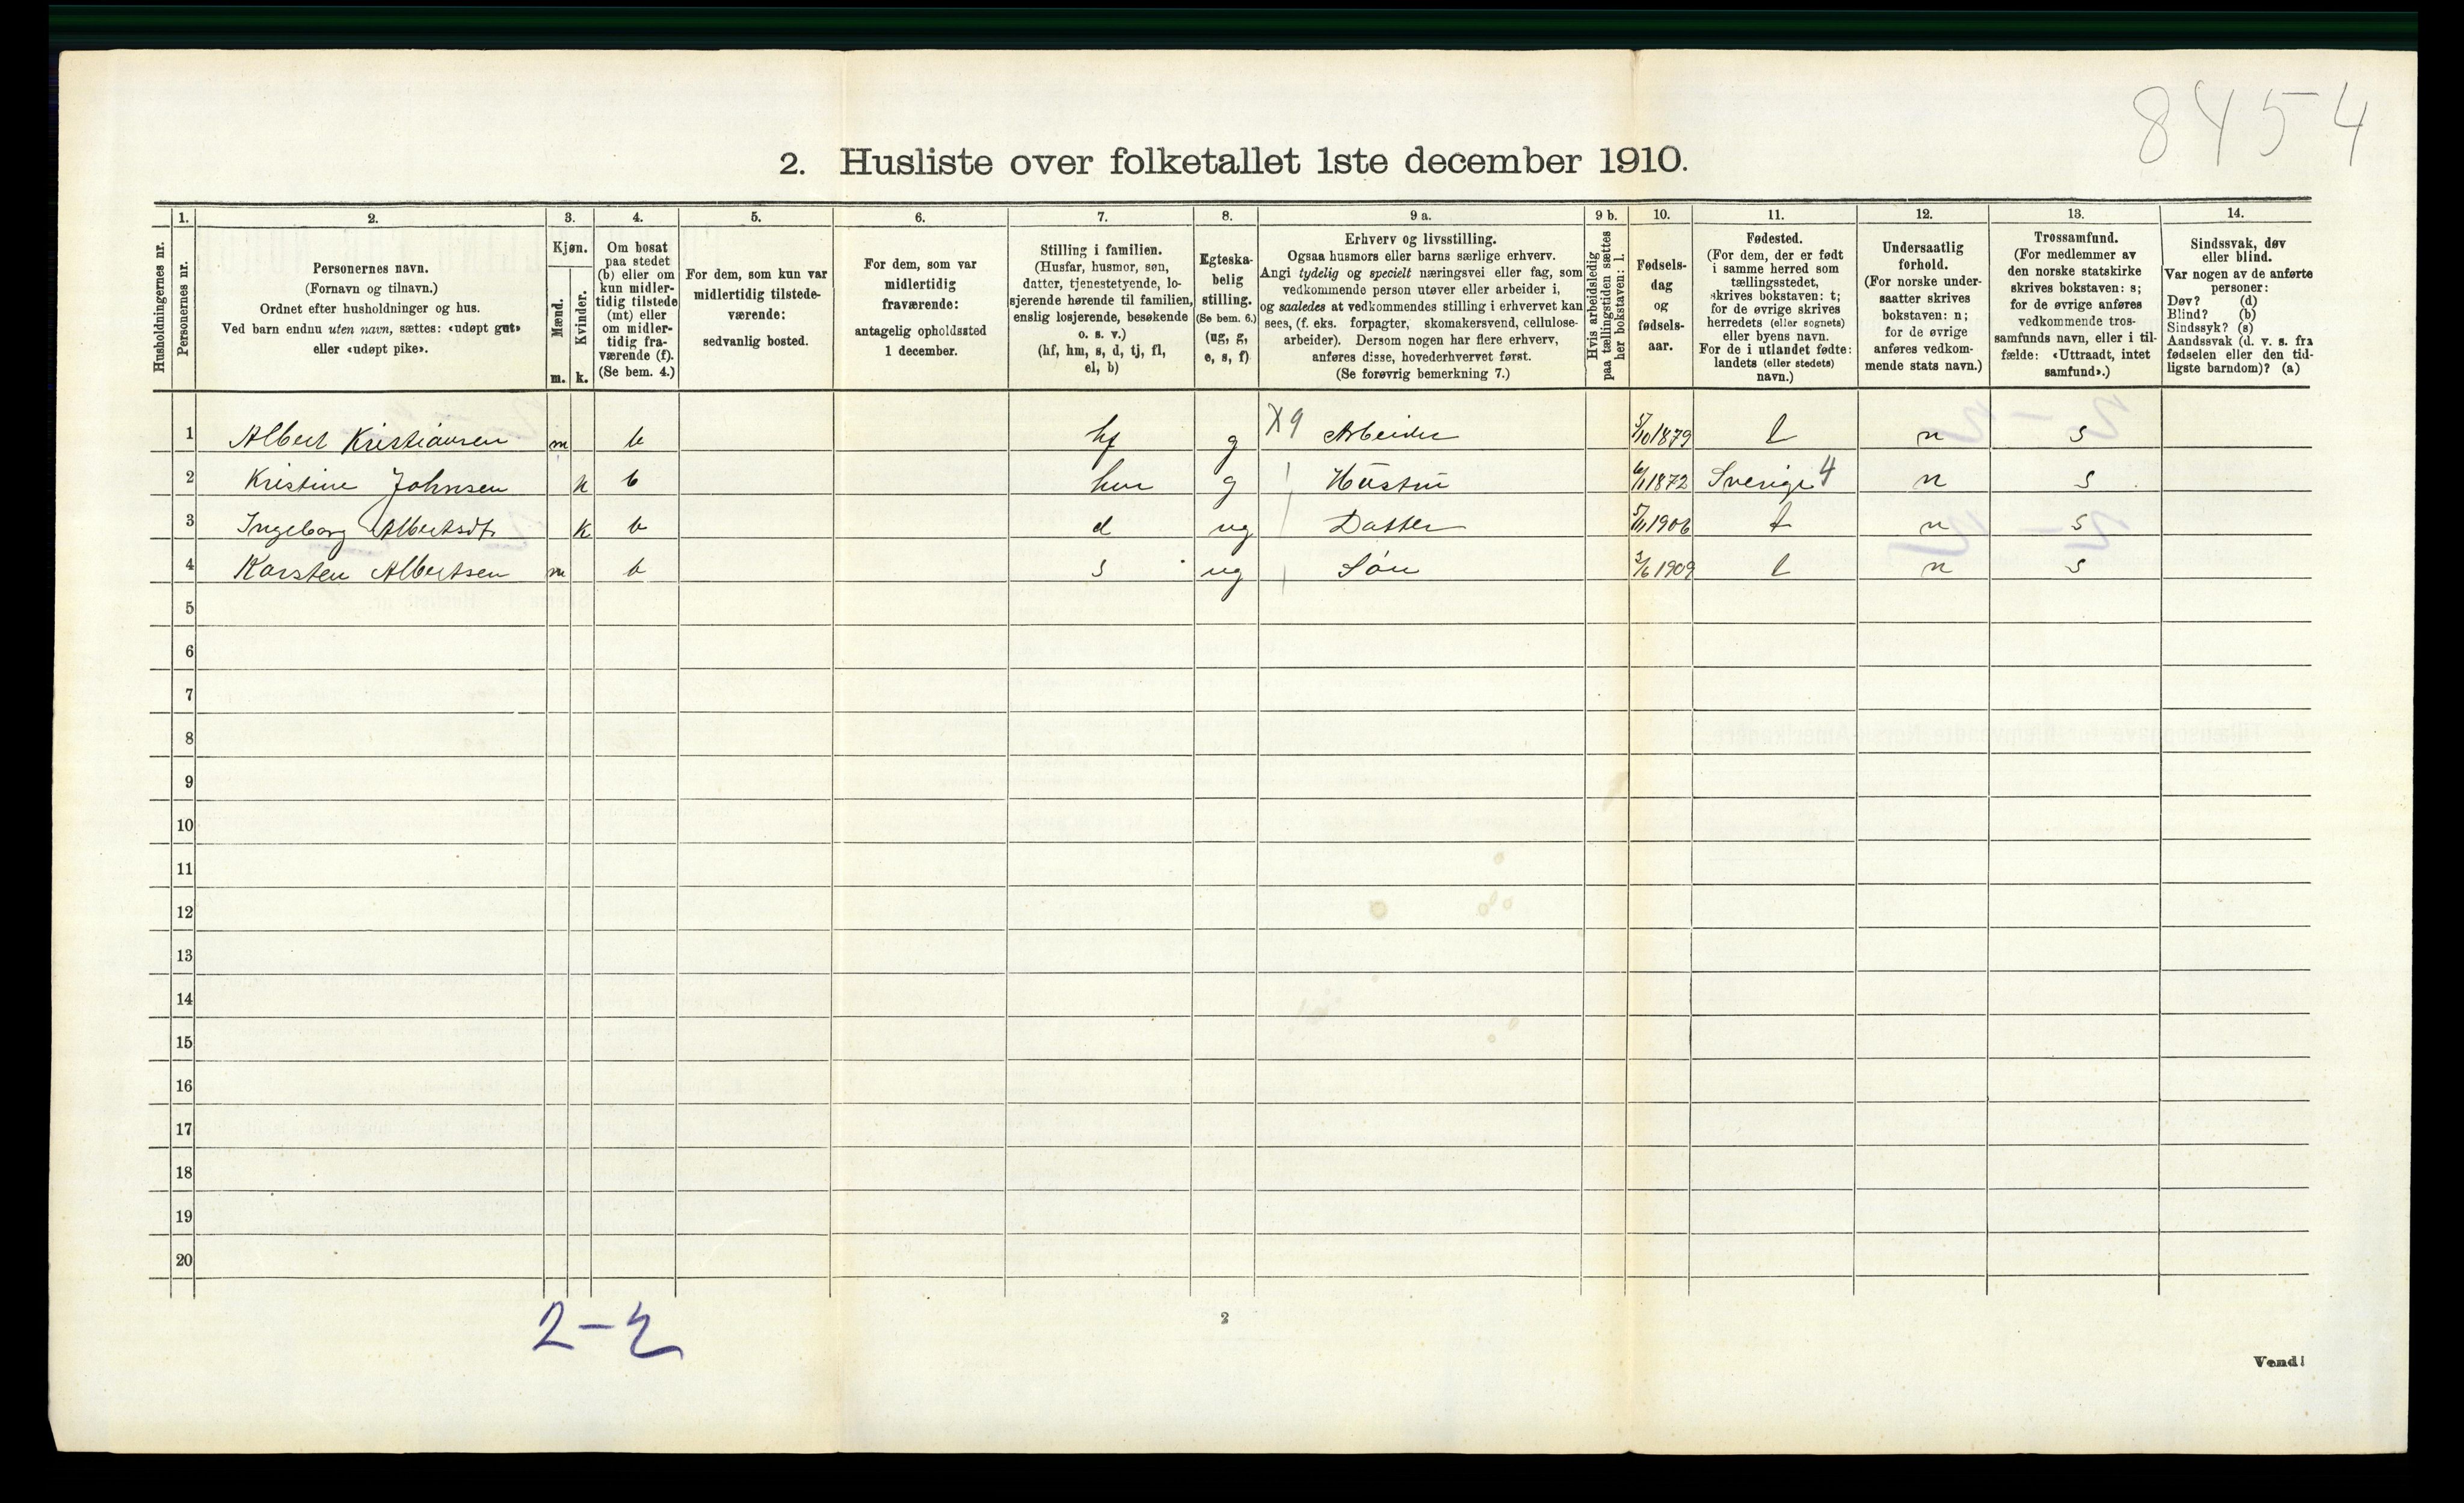 8454
2. Husliste over folketallet 1ste december 1910.
Husholdningernes nr.
1. Personernes nr.
2. Personernes navn.
(Fornavn og tilnavn.)
Ordnet efter husholdninger og hus.
Ved barn endnu uten navn, sættes: «udøpt gut»
eller «udøpt pike».
3. Kjøn.
Mænd. m.
Kvinder. k.
4. Om bosat
paa stedet
(b) eller om
kun midler-
tidig tilstede
(mt) eller
om midler-
tidig fra-
værende (f).
(Se bem. 4.)
5. For dem, som kun var
midlertidig tilstede-
værende:
sedvanlig bosted.
6. For dem, som var
midlertidig
fraværende:
antagelig opholdssted
1 december.
7. Stilling i familien.
(Husfar, husmor, søn,
datter, tjenestetyende, lo-
sjerende hørende til familien,
enslig losjerende, besøkende
o. s. v.)
(hf, hm, s, d, tj, fl,
el, b)
8. Egteska-
belig
stilling.
(Se bem. 6.)
(ug, g,
e, s, f)
9 a. Erhverv og livsstilling.
Ogsaa husmors eller barns særlige erhverv.
Angi tydelig og specielt næringsvei eller fag, som
vedkommende person utøver eller arbeider i,
og saaledes at vedkommendes stilling i erhvervet kan
sees, (f. eks. forpagter, skomakersvend, cellulose-
arbeider). Dersom nogen har flere erhverv,
anføres disse, hovederhvervet først.
(Se forøvrig bemerkning 7.)
9 b. Hvis arbeidsledig
paa tællingstiden sættes
her bokstaven: l.
10. Fødsels-
dag
og
fødsels-
aar.
11. Fødested.
(For dem, der er født
i samme herred som
tællingsstedet,
skrives bokstaven: t;
for de øvrige skrives
herredets (eller sognets)
eller byens navn.
For de i utlandet fødte:
landets (eller stedets)
navn.)
12. Undersaatlig
forhold.
(For norske under-
saatter skrives
bokstaven: n;
for de øvrige
anføres vedkom-
mende stats navn.)
13. Trossamfund.
(For medlemmer av
den norske statskirke
skrives bokstaven: s;
for de øvrige anføres
vedkommende tros-
samfunds navn, eller i til-
fælde: «Uttraadt, intet
samfund».)
14. Sindssvak, døv
eller blind.
Var nogen av de anførte
personer:
Døv? (d)
Blind? (b)
Sindssyk? (s)
Aandssvak (d. v. s. fra
fødselen eller den tid-
ligste barndom)? (a)
1 Albert Kristiansen m b hf g X9 Arbeider 5/10 1879 t n s
2 Kristine Johnsen k b hm g Hustru 6/1 1872 Sverige 4 n s
3 Ingeborg Albertsdtr k b d ug Datter 1906 t n s
4 Karsten Albertsen m b s ug Søn 3/6 1909 t n s
5
6
7
8
9
10
11
12
13
14
15
16
17
18
19
20
2-2
2
Vend!